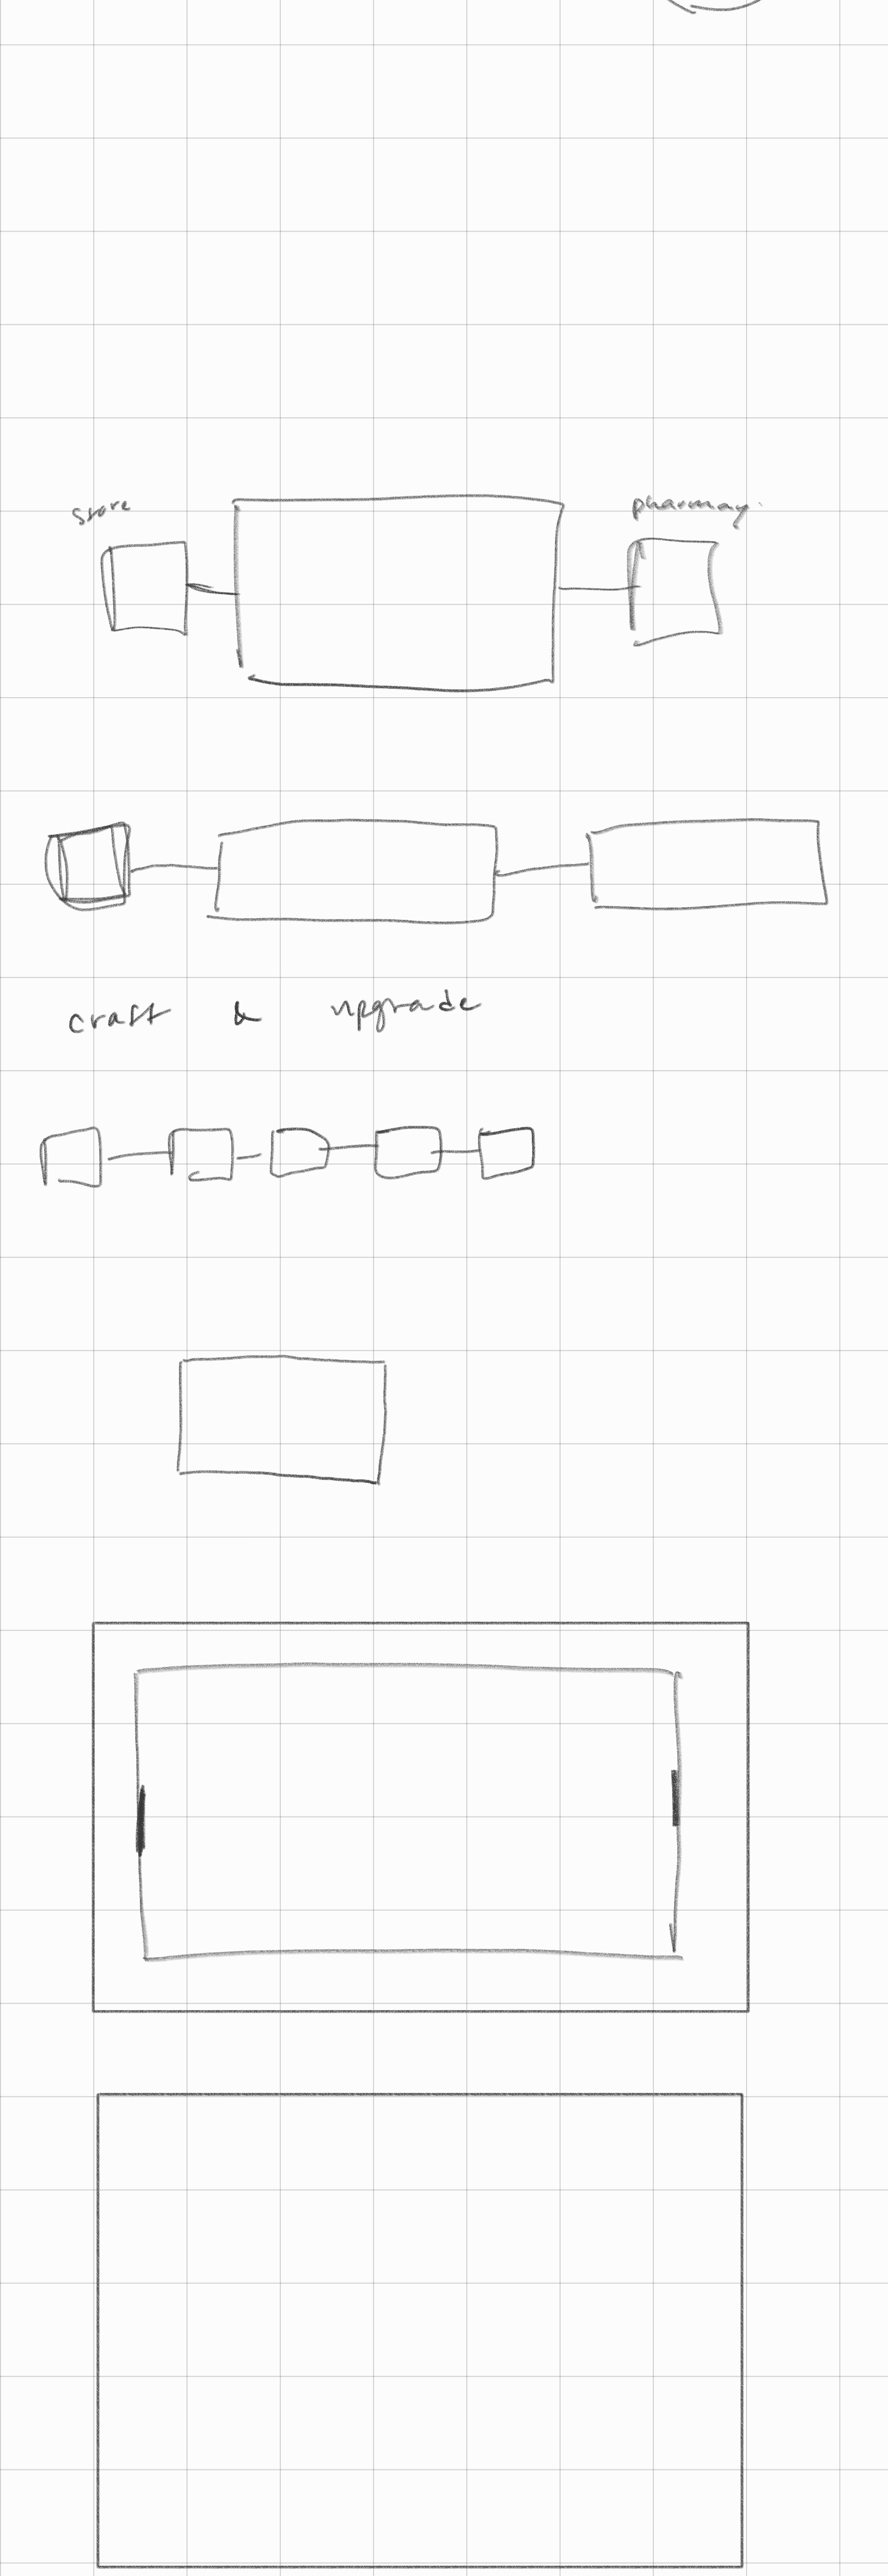 store
pharmay.
craft & upgrade